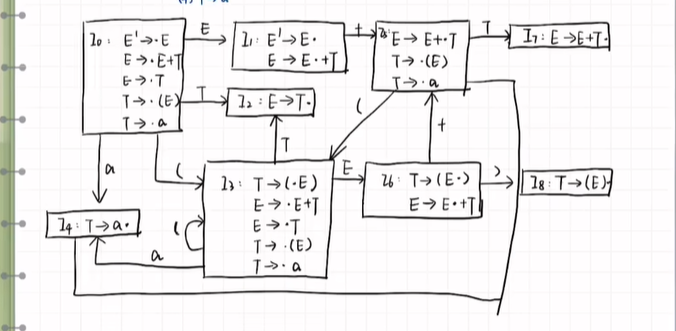 I₀: E'→·E
E→·E+T
E→·T
T→·(E)
T→·a
E
I₁: E'→E·
E→E·+T
+
I₅: E→E+·T
T→·(E)
T→·a
T
I₇: E→E+T·
T
I₂: E→T·
(
a
(
T
+
I₃: T→(·E)
E→·E+T
E→·T
T→·(E)
T→·a
E
I₆: T→(E·)
E→E·+T
)
I₈: T→(E)·
I₄: T→a·
(
a